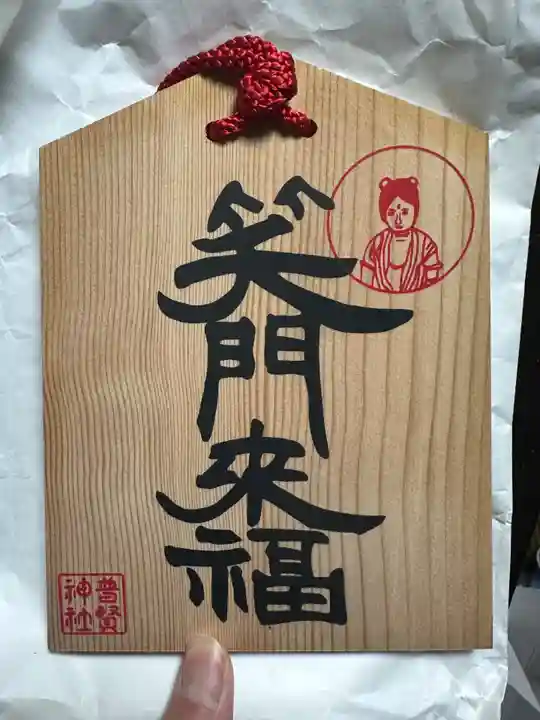 笑門来福
普賢
神社